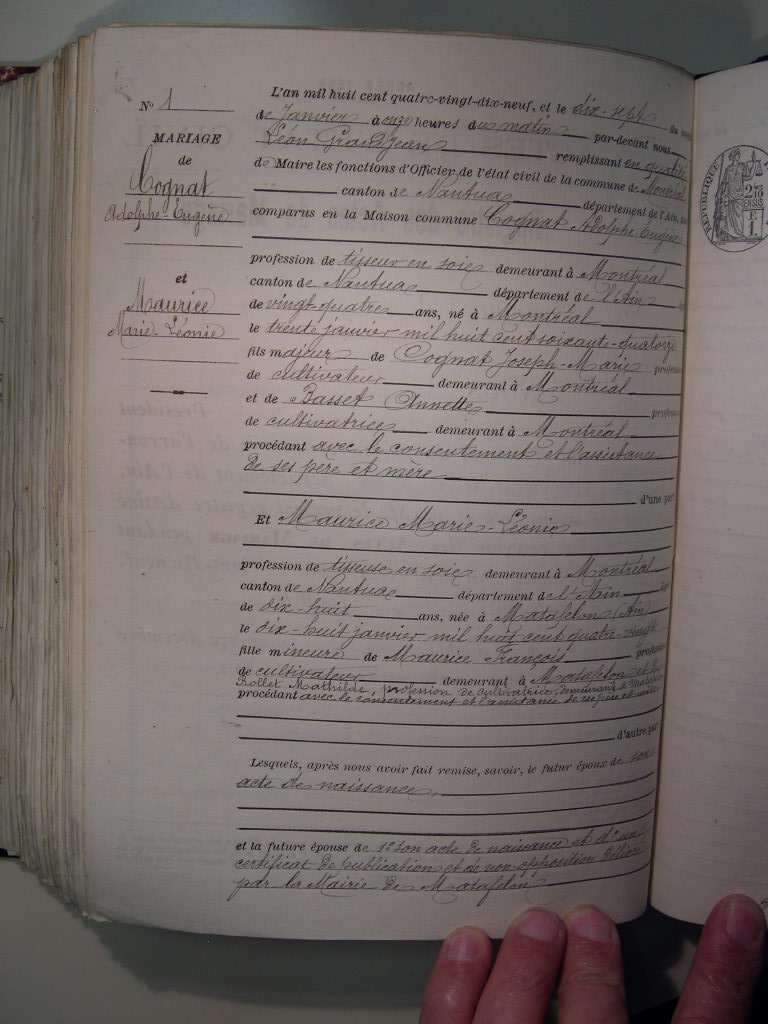 N° 1
MARIAGE
de
Cognat
Adolphe-Eugène
et
Maurice
Marie-Léonie
L'an mil huit cent quatre-vingt-dix-neuf, et le dix-sept du
de Janvier à onze heures du matin par-devant nous
Léon Grandjean remplissant en qualité
de Maire les fonctions d'Officier de l'état civil de la commune de Montréal
canton de Nantua département de l'Ain,
comparus en la Maison commune Cognat Adolphe Eugène
profession de tisseur en soie demeurant à Montréal
canton de Nantua département de l'Ain
de vingt-quatre ans, né à Montréal
le trente janvier mil huit cent soixante-quatorze
fils majeur de Cognat Joseph-Marie profession
de cultivateur demeurant à Montréal
et de Basset Annette profession
de cultivatrice demeurant à Montréal
procédant avec le consentement et l'assistance
de ses père et mère
d'une part
Et Maurice Marie-Léonie
profession de tisseuse en soie demeurant à Montréal
canton de Nantua département de l'Ain
de dix-huit ans, née à Matafelon (Ain)
le dix-huit janvier mil huit cent quatre-vingt
fille mineure de Maurice François profession
de cultivateur demeurant à Matafelon et de
Rollet Mathilde, profession de cultivatrice, demeurant à Matafelon
procédant avec le consentement et l'assistance de ses père et mère
d'autre part
Lesquels, après nous avoir fait remise, savoir, le futur époux de son
acte de naissance
et la future épouse de 1° son acte de naissance et d'un
certificat de publication et de non-opposition délivré
par la Mairie de Matafelon
RÉPUBLIQUE